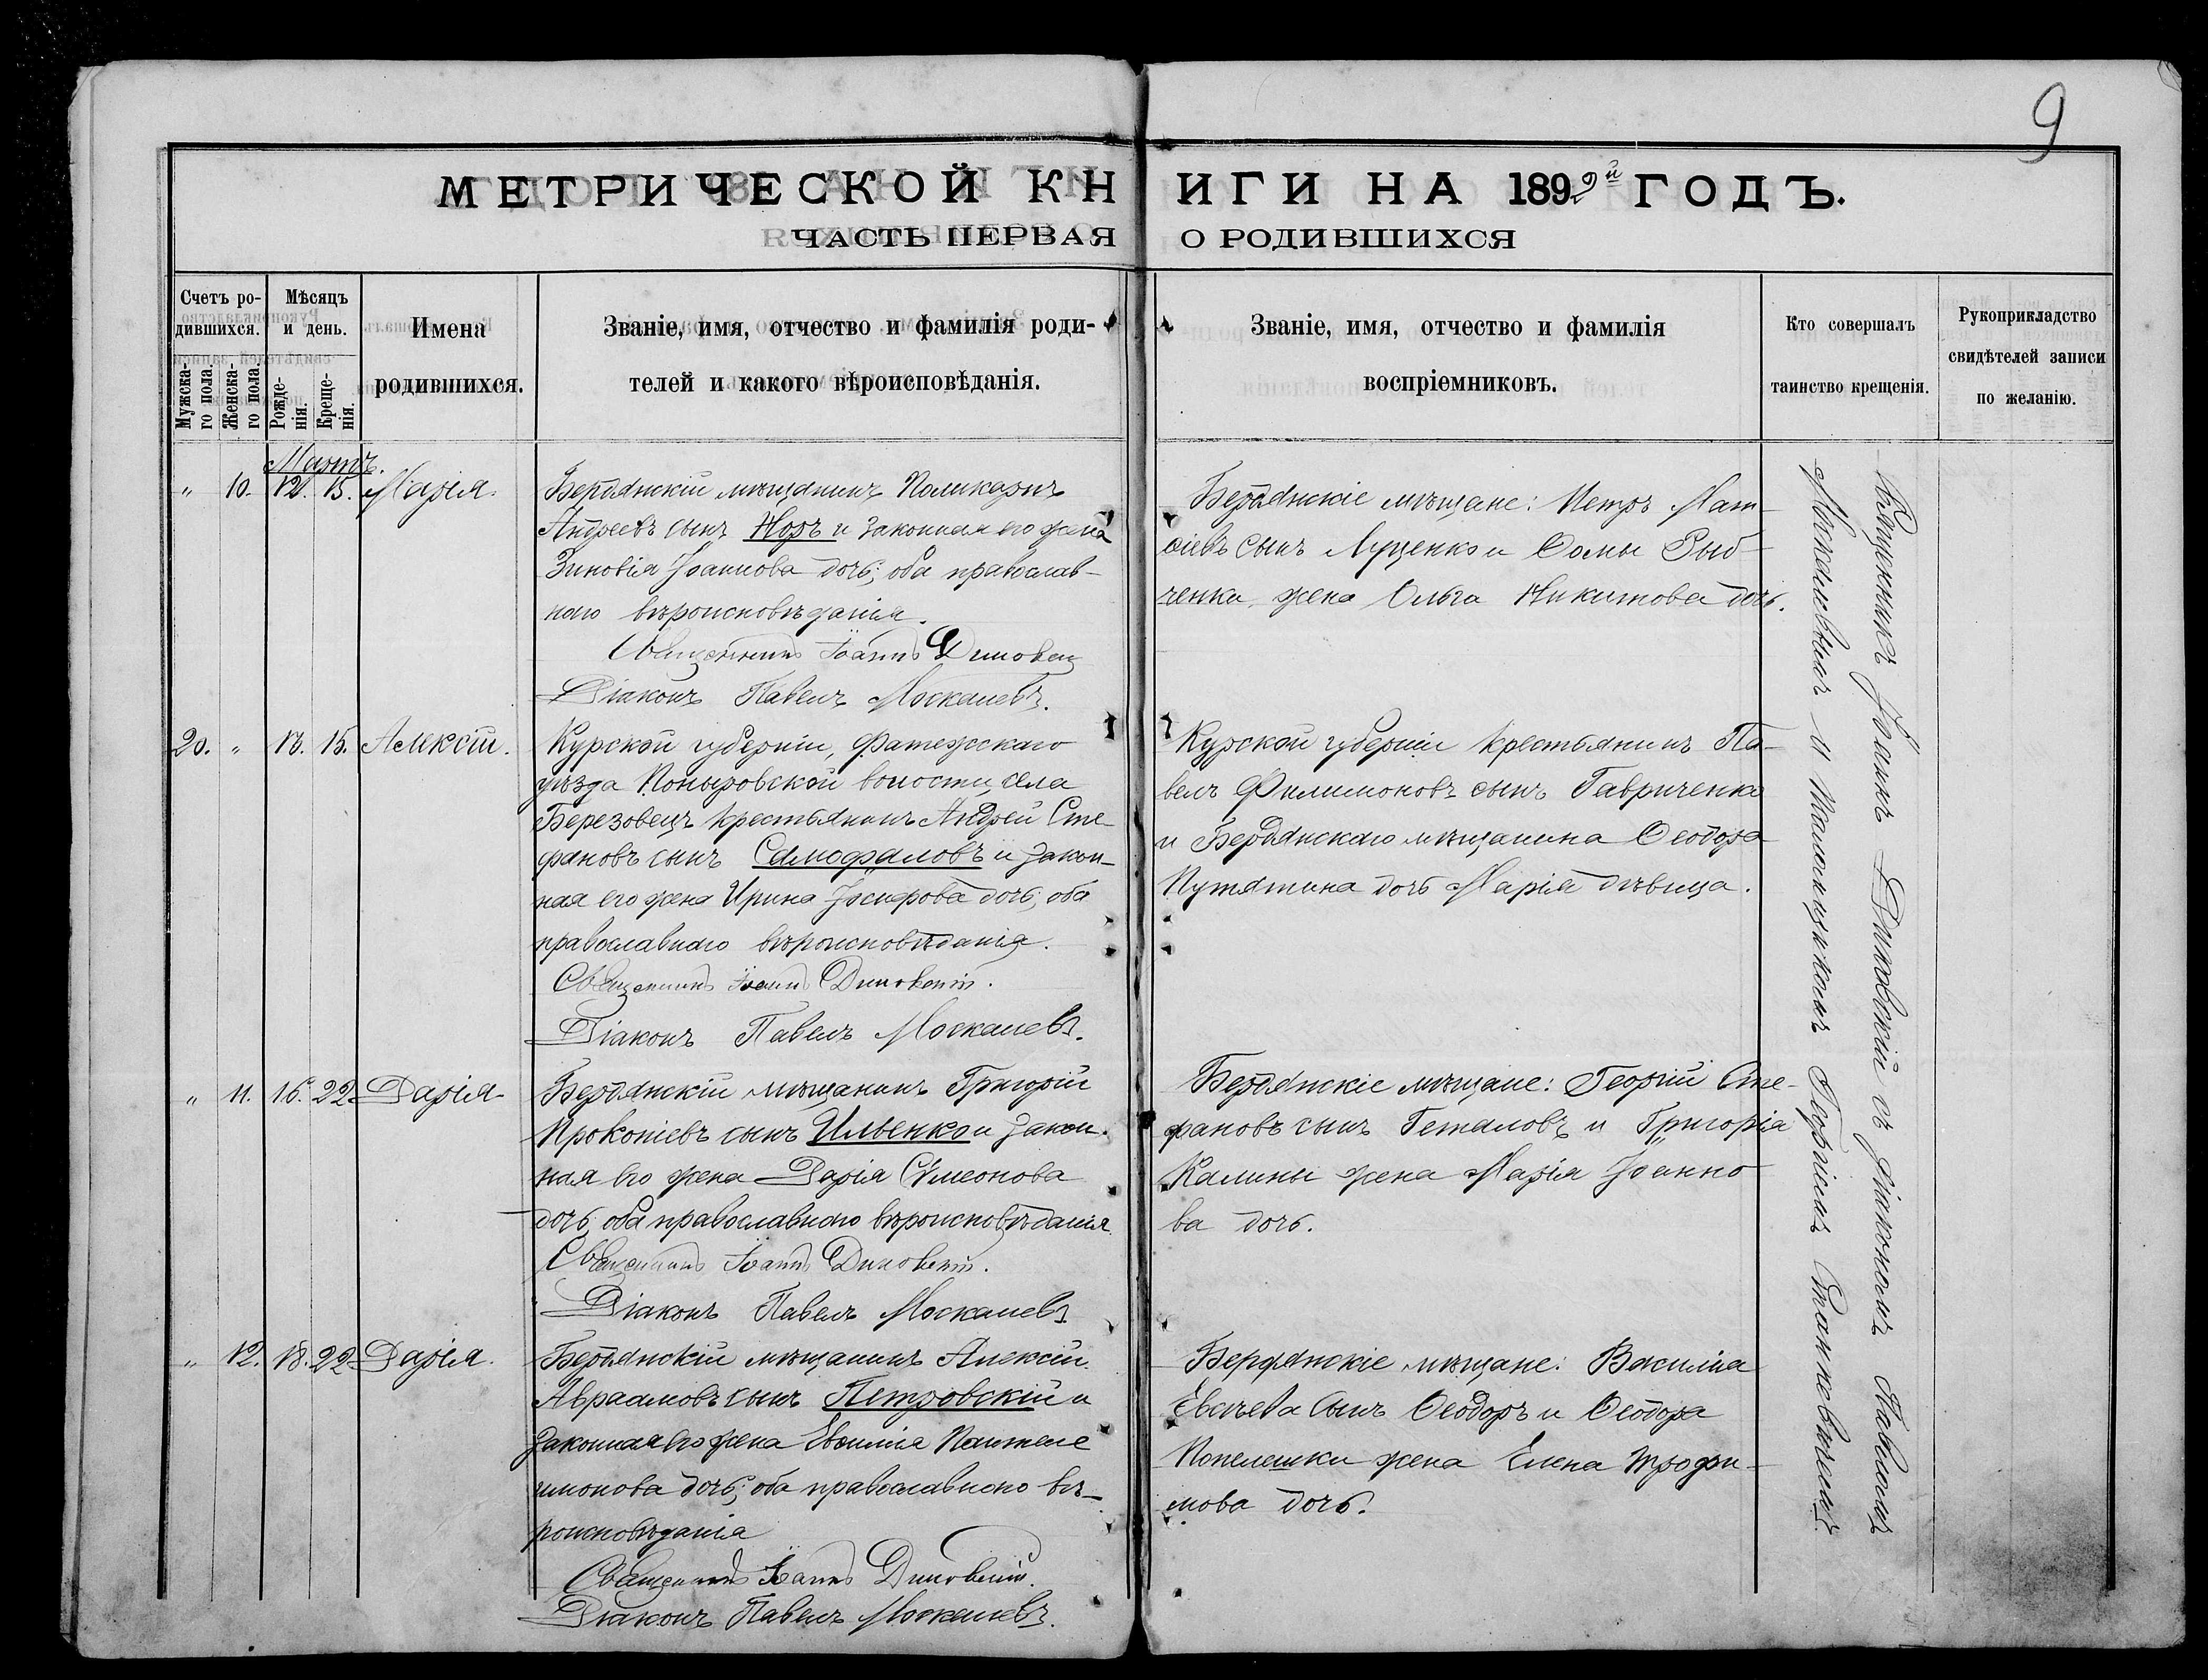 9
МЕТРИЧЕСКОЙ КНИГИ НА 1892й ГОДЪ.
ЧАСТЬ ПЕРВАЯ О РОДИВШИХСЯ
Счетъ ро-
дившихся.
Мужска-
го пола.
Женска-
го пола.
Мѣсяцъ
и день.
Рожде-
нія.
Креще-
нія.
Имена
родившихся.
Званіе, имя, отчество и фамилія роди-
телей и какого вѣроисповѣданія.
Званіе, имя, отчество и фамилія
воспріемниковъ.
Кто совершалъ
таинство крещенія.
Рукоприкладство
свидѣтелей записи
по желанію.
Мартъ.
" 10. 12. 15. Марія.
Бердянскій мѣщанинъ Поликарпъ
Андреевъ сынъ Норъ и законная его жена
Зиновія Іоаннова дочь; оба православ-
наго вѣроисповѣданія.
Священникъ Іоаннъ
Діаконъ Павелъ Москалевъ.
Бердянскіе мѣщане: Петръ Мат-
ѳіевъ сынъ Луценко и Ѳомы Рыб-
ченка жена Ольга Никитова дочь.
20. " 13. 15. Алексій.
Курской губерніи, Фатежскаго
уѣзда Поныровской волости, села
Березовецъ крестьянинъ Андрей Сте-
фановъ сынъ Самофаловъ и закон-
ная его жена Ирина Іосифова дочь; оба
православнаго вѣроисповѣданія.
Священникъ Іоаннъ
Діаконъ Павелъ Москалевъ.
Курской губерніи крестьянинъ Па-
велъ Филимоновъ сынъ Гавриченко
и Бердянскаго мѣщанина Ѳеодора
Путятина дочь Марія дѣвица.
" 11. 16. 22. Дарія
Бердянскій мѣщанинъ Григорій
Прокопіевъ сынъ Ильенко и закон-
ная его жена Дарія Сѵмеонова
дочь, оба православнаго вѣроисповѣданія
Священникъ Іоаннъ
Діаконъ Павелъ Москалевъ
Бердянскіе мѣщане: Георгій Сте-
фановъ сынъ Геталовъ и Григорія
Калины жена Марія Іоанно-
ва дочь.
" 12. 18. 22. Дарія.
Бердянскій мѣщанинъ Алексій
Авраамовъ сынъ Петровскій и
законная его жена Евѳимія Пантеле
имонова дочь; оба православнаго вѣ-
роисповѣданія
Священникъ Іоаннъ
Діаконъ Павелъ Москалевъ.
Бердянскіе мѣщане: Василія
Евсѣева сынъ Ѳеодоръ и Ѳеодора
Попелешки жена Елена Трофи-
мова дочь.
Священникъ Іоаннъ съ діакономъ Павломъ
Москалевымъ и Георгіемъ Станкевичемъ